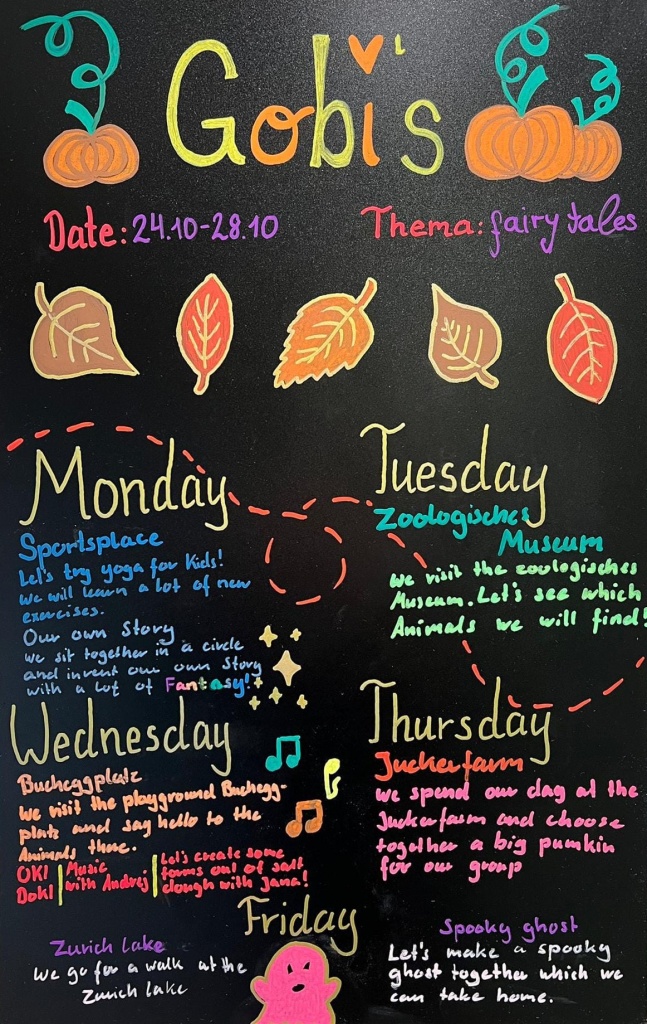 Gobi's
Date: 24.10-28.10
Thema: fairy tales
Monday
Sportsplace
Let's try yoga for Kids!
We will learn a lot of new
exercises.
Our own Story
We sit together in a circle
and invent our own Story
with a lot of Fantasy!
Tuesday
Zoologisches
Museum
We visit the zoologisches
Museum. Let's see which
Animals we will find!
Wednesday
Bucheggplatz
We visit the playground Buchegg-
platz and say hello to the
Animals there.
OKI
Doki
Music
with Andrej
Let's create some
forms out of salt
dough with Jana!
Thursday
Juckerfarm
We spend our day at the
Juckerfarm and choose
together a big pumkin
for our group
Friday
Zurich lake
We go for a walk at the
Zurich lake
Spooky ghost
Let's make a spooky
ghost together which we
can take home.